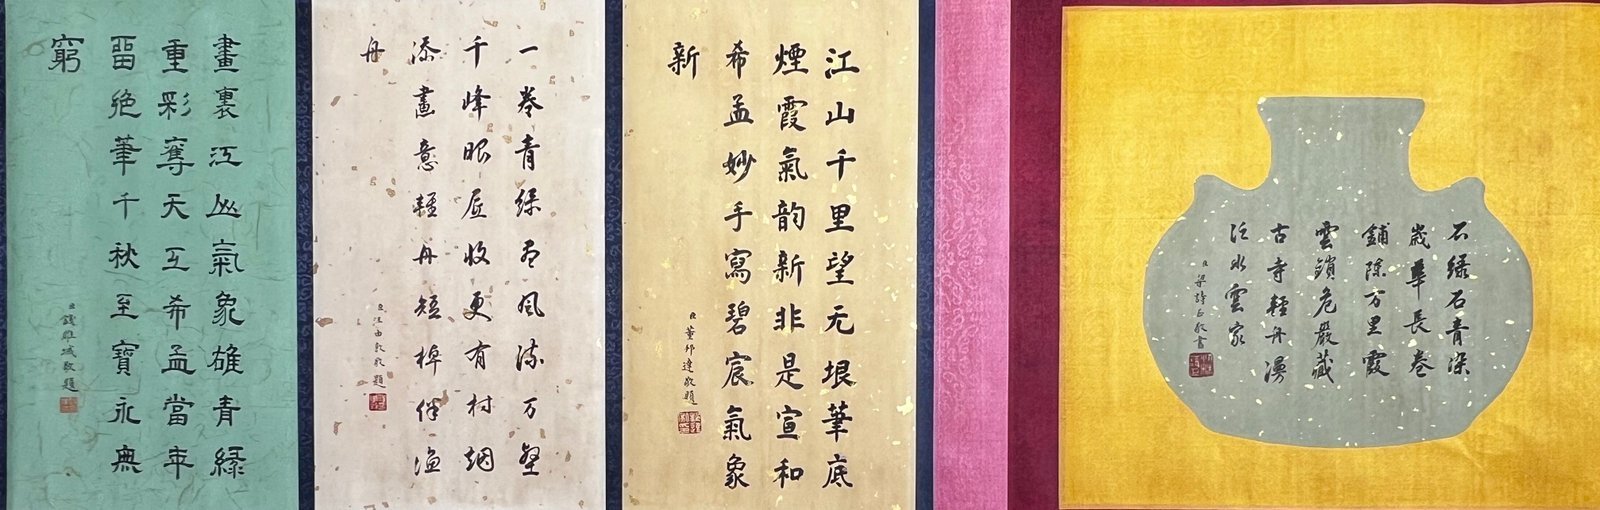 石绿石青染
歲華長卷
鋪陳万里霞
雲鎖危巖藏
古寺輕舟漫
泛水雲家
臣梁詩正敬書
江山千里望无垠筆底
煙霞氣韵新非是宣和
希孟妙手寫碧宸氣象
新
臣董邦達敬題
一卷青绿風流万壑
千峰眼底收更有村烟
添畫意輕舟短棹伴漁
舟
臣汪由敦敬題
畫裏江山氣象雄青緑
重彩奪天工希孟當年
留绝筆千秋至寶永無
窮
臣錢維城敬題